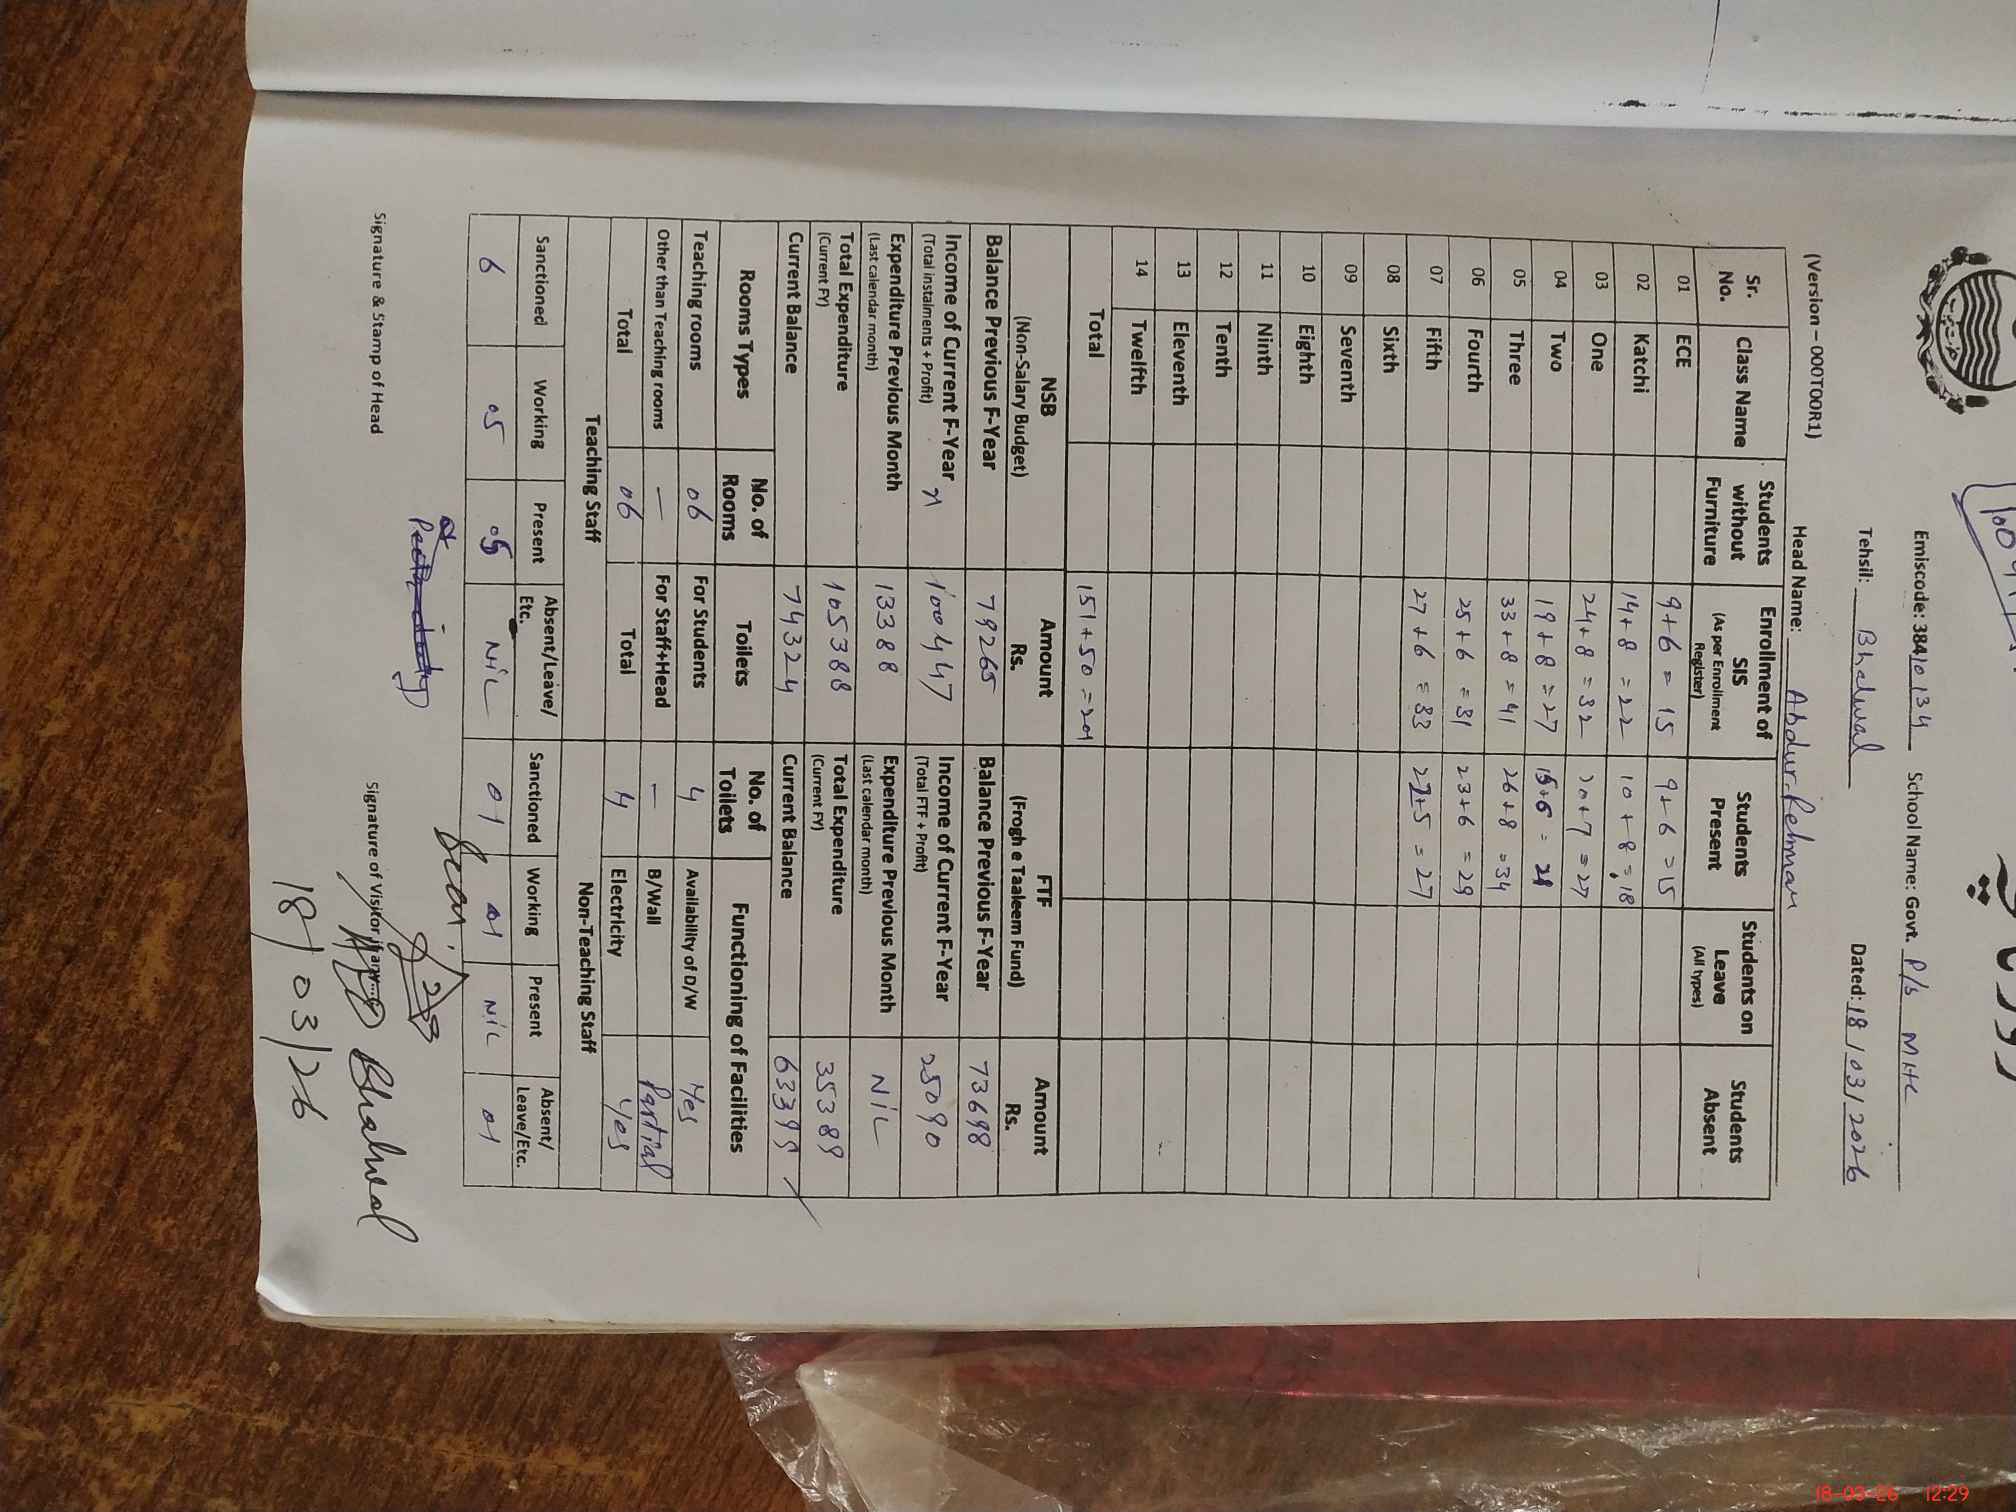 Emiscode: 38410134 School Name: Govt. P/s MHC
Tehsil: Bhalwal Dated: 18/03/2026
(Version – 000T00R1) Head Name: Abdur Rehman
Sr. No. Class Name Students without Furniture Enrollment of SIS (As per Enrollment Register) Students Present Students on Leave (All types) Students Absent
01 ECE 9+6=15 9+6=15
02 Katchi 14+8=22 10+8=18
03 One 24+8=32 20+7=27
04 Two 19+8=27 15+6=21
05 Three 33+8=41 26+8=34
06 Fourth 25+6=31 23+6=29
07 Fifth 27+6=33 27+5=27
08 Sixth
09 Seventh
10 Eighth
11 Ninth
12 Tenth
13 Eleventh
14 Twelfth
Total 151+50=201
NSB (Non-Salary Budget) Amount Rs. FTF (Frogh e Taaleem Fund) Amount Rs.
Balance Previous F-Year 79265 Balance Previous F-Year 73698
Income of Current F-Year (Total instalments + Profit) 100447 Income of Current F-Year (Total FTF + Profit) 25090
Expenditure Previous Month (Last calendar month) 13388 Expenditure Previous Month (Last calendar month) NIL
Total Expenditure (Current FY) 105388 Total Expenditure (Current FY) 35389
Current Balance 74324 Current Balance 63399
Rooms Types No. of Rooms Toilets No. of Toilets Functioning of Facilities
Teaching rooms 06 For Students 4 Availability of D/W Yes
Other than Teaching rooms — For Staff+Head — B/Wall Partial
Total 06 Total 4 Electricity Yes
Teaching Staff Non-Teaching Staff
Sanctioned Working Present Absent/Leave/Etc. Sanctioned Working Present Absent/Leave/Etc.
6 05 05 NIL 01 01 NIL 01
Seen.
Signature & Stamp of Head Signature of Visitor
Bhalwal
18/03/26
18-03-26 12:29